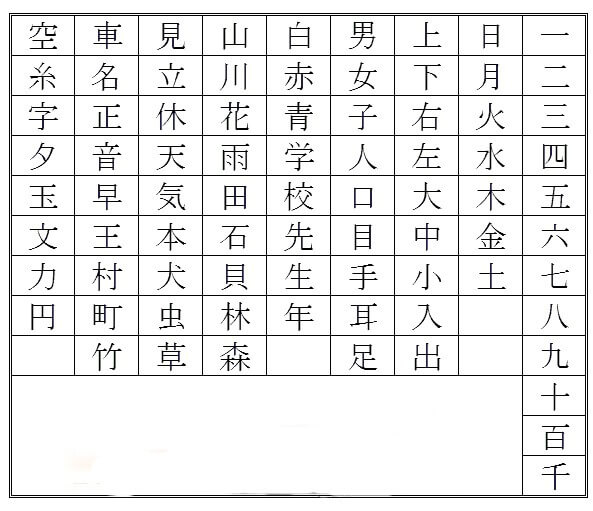 一二三四五六七八九十百千
日月火水木金土
上下右左大中小入出
男女子人口目手耳足
白赤青学校先生年
山川花雨田石貝林森
見立休天気本犬虫草
車名正音早王村町竹
空糸字夕玉文力円